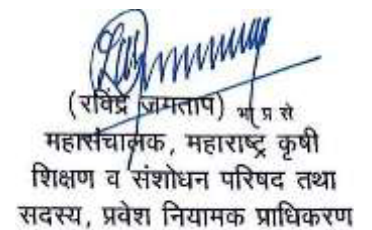 (रविंद्र जगताप) भा प्र से
महासंचालक, महाराष्ट्र कृषी
शिक्षण व संशोधन परिषद तथा
सदस्य, प्रवेश नियामक प्राधिकरण